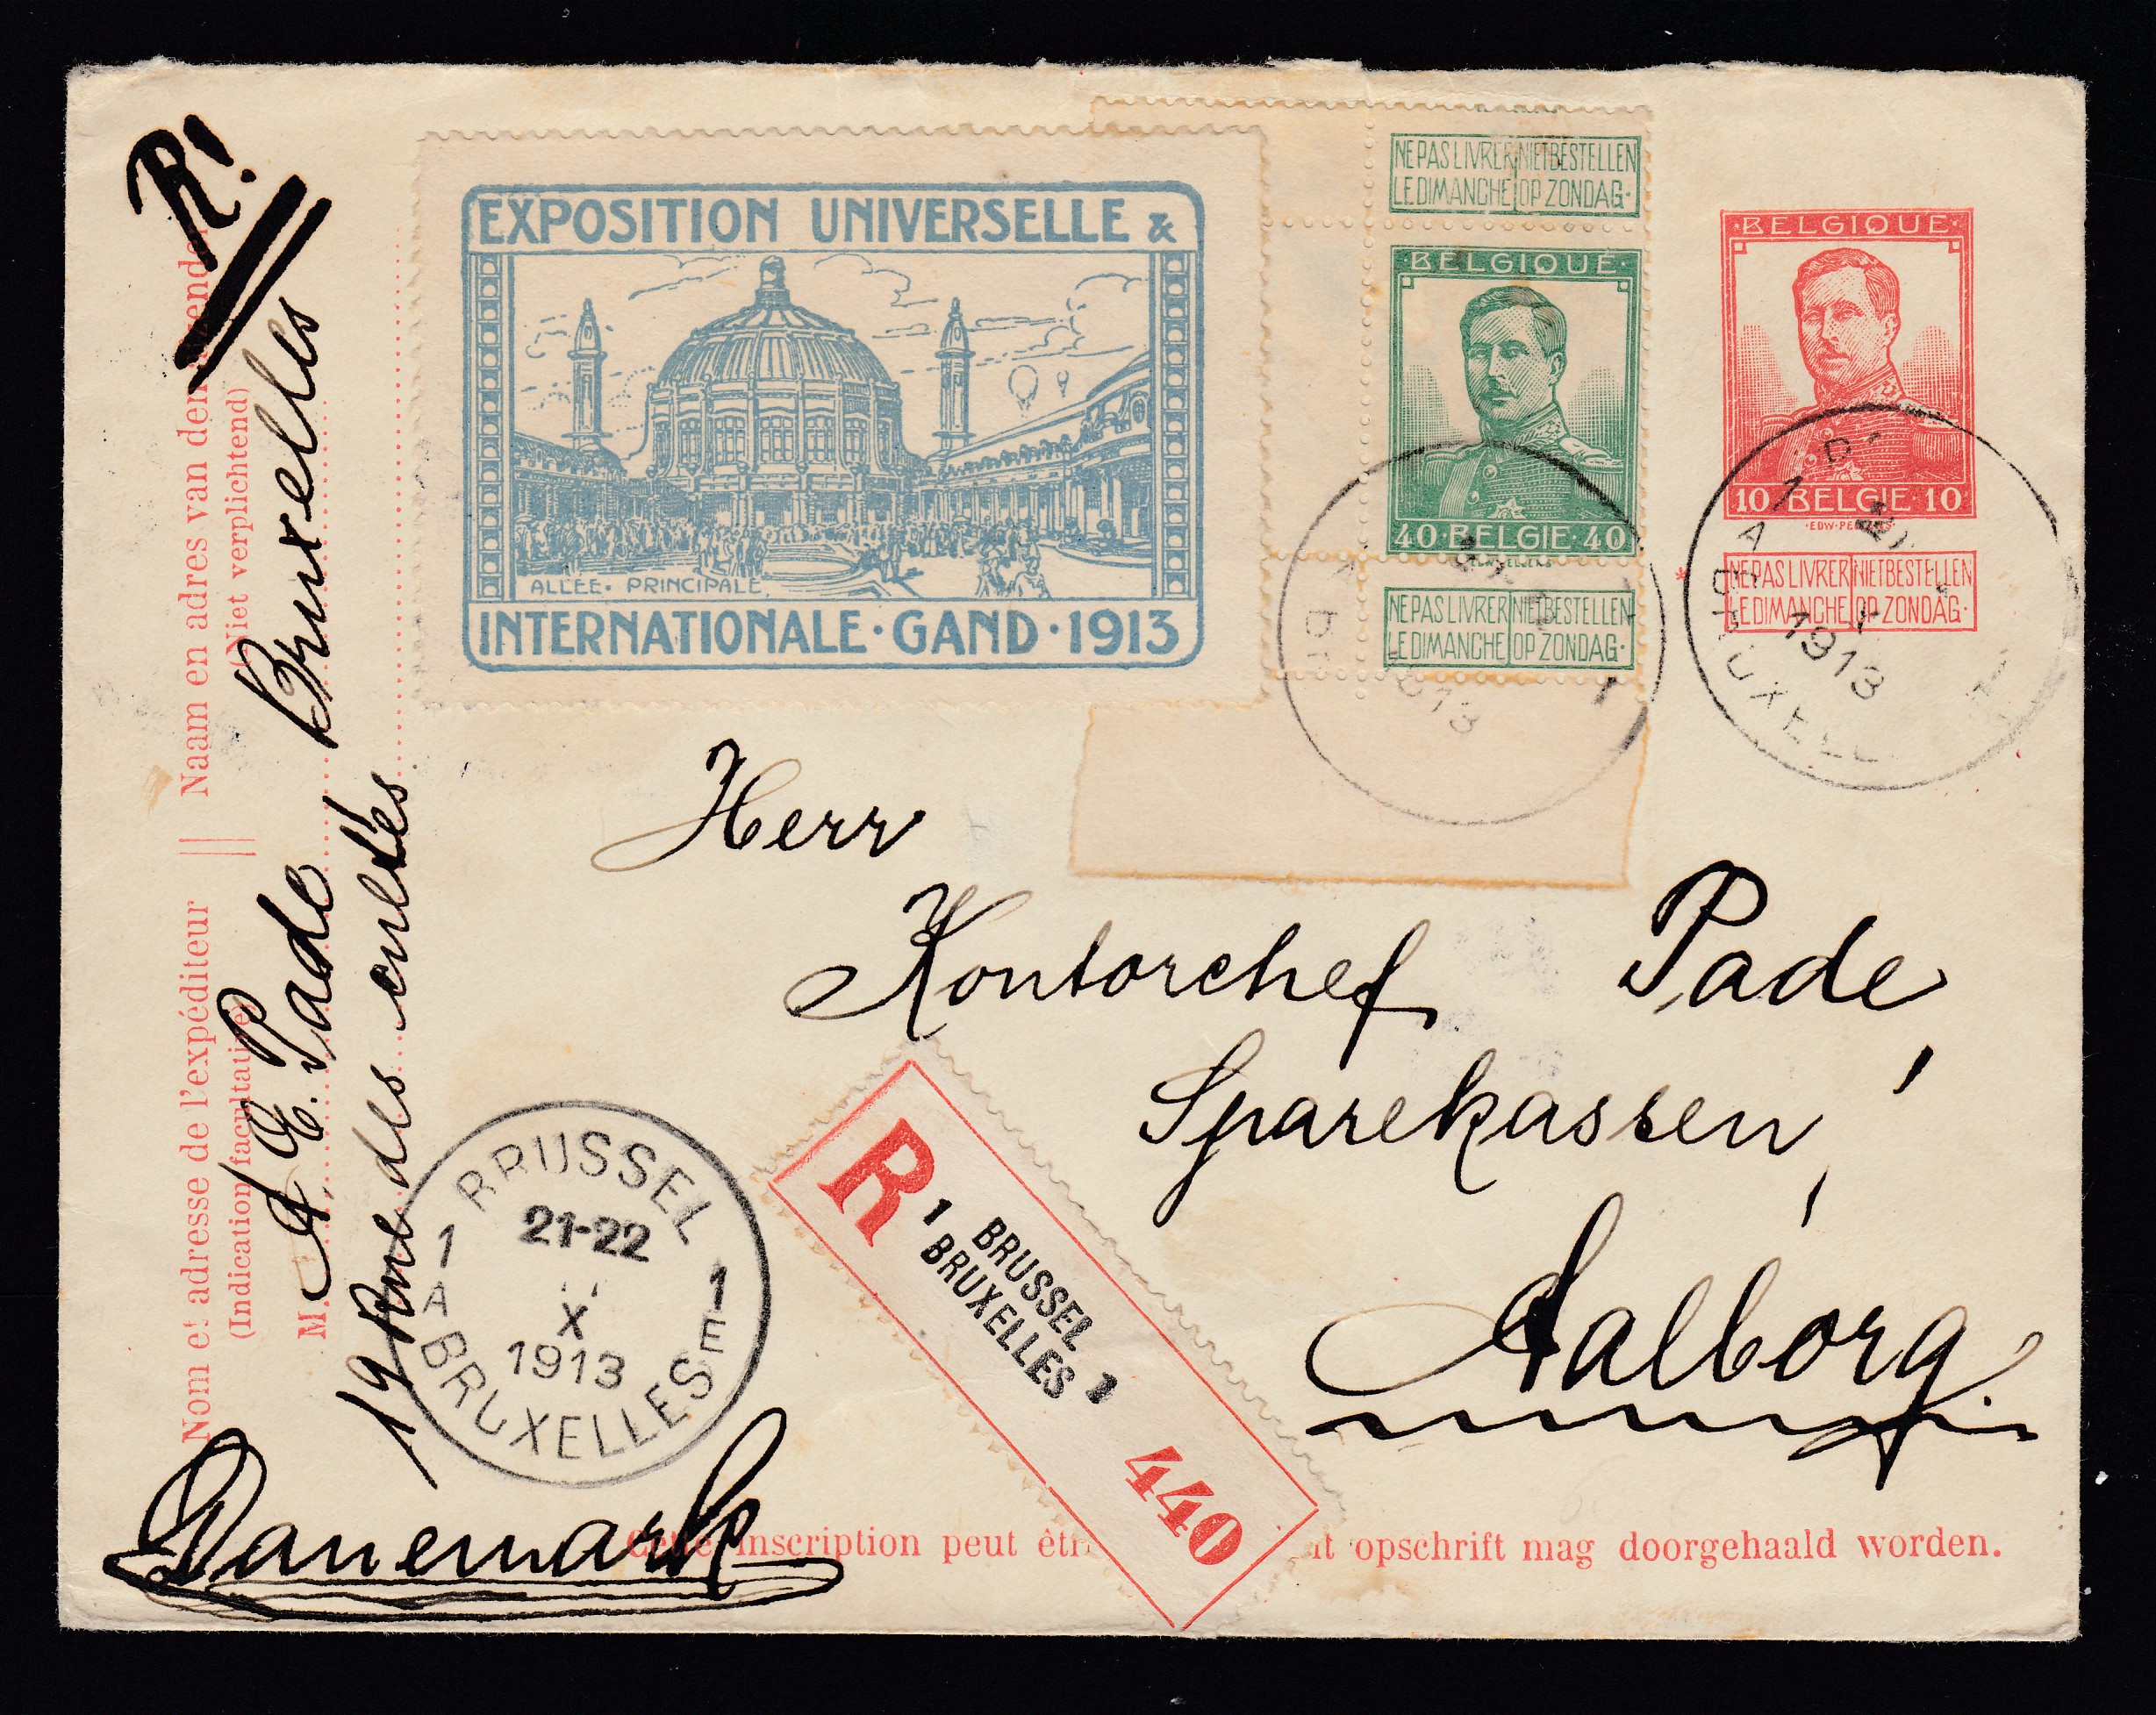 R!
EXPOSITION UNIVERSELLE &
ALLÉE. PRINCIPALE
INTERNATIONALE · GAND · 1913
NE PAS LIVRER NIET BESTELLEN
LE DIMANCHE OP ZONDAG.
·BELGIQUE·
40·BELGIE·40
NE PAS LIVRER NIET BESTELLEN
LE DIMANCHE OP ZONDAG.
1913
1
·BELGIQUE·
10·BELGIE·10
NE PAS LIVRER NIET BESTELLEN
LE DIMANCHE OP ZONDAG.
1
A
1913
Nom et adresse de l'expéditeur || Naam en adres van den
(Indication facultative) (Niet verplichtend)
M.
E. Pade Bruxelles
19 Rue des cultes
Herr
Kontorchef Pade,
Sparekassen,
Aalborg.
Danemark
1 BRUSSEL 1
21-22
X
1913
A BRUXELLES E
R
1 BRUSSEL
1 BRUXELLES 1
440
inscription peut opschrift mag doorgehaald worden.